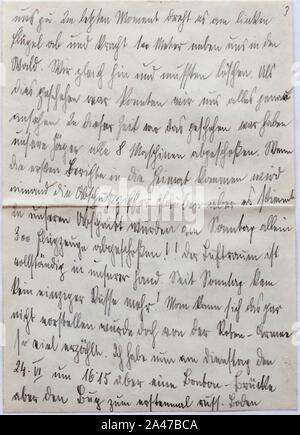 3
uns zu. Im letzten Moment dreht es am linken
Flügel ab und kracht 100 Meter neben uns in den
Wald. Wir gleich hin und mussten löschen. Als
dies geschehen war konnten wir uns alles genau
ansehen. In dieser Zeit wo das geschehen war haben
unsere Jäger alle 8 Maschinen abgeschossen. Wenn
die ersten Berichte in die Heimat kommen wird
niemand die
in unserem Abschnitt wurden am Sonntag allein
300 Flugzeuge abgeschossen!! Der Luftraum ist
vollständig in unserer Hand. Seit Sonntag kam
kein einziger Russe mehr! Man kann sich das gar
nicht vorstellen wurde doch von der Roten-Armee
so viel erzählt. Ich habe nun am Dienstag den
24.VI um 16 15 über eine Ponton-Brücke
über den Bug zum erstenmal russ. Boden
alamy
Image ID: 2A47BCA
www.alamy.com